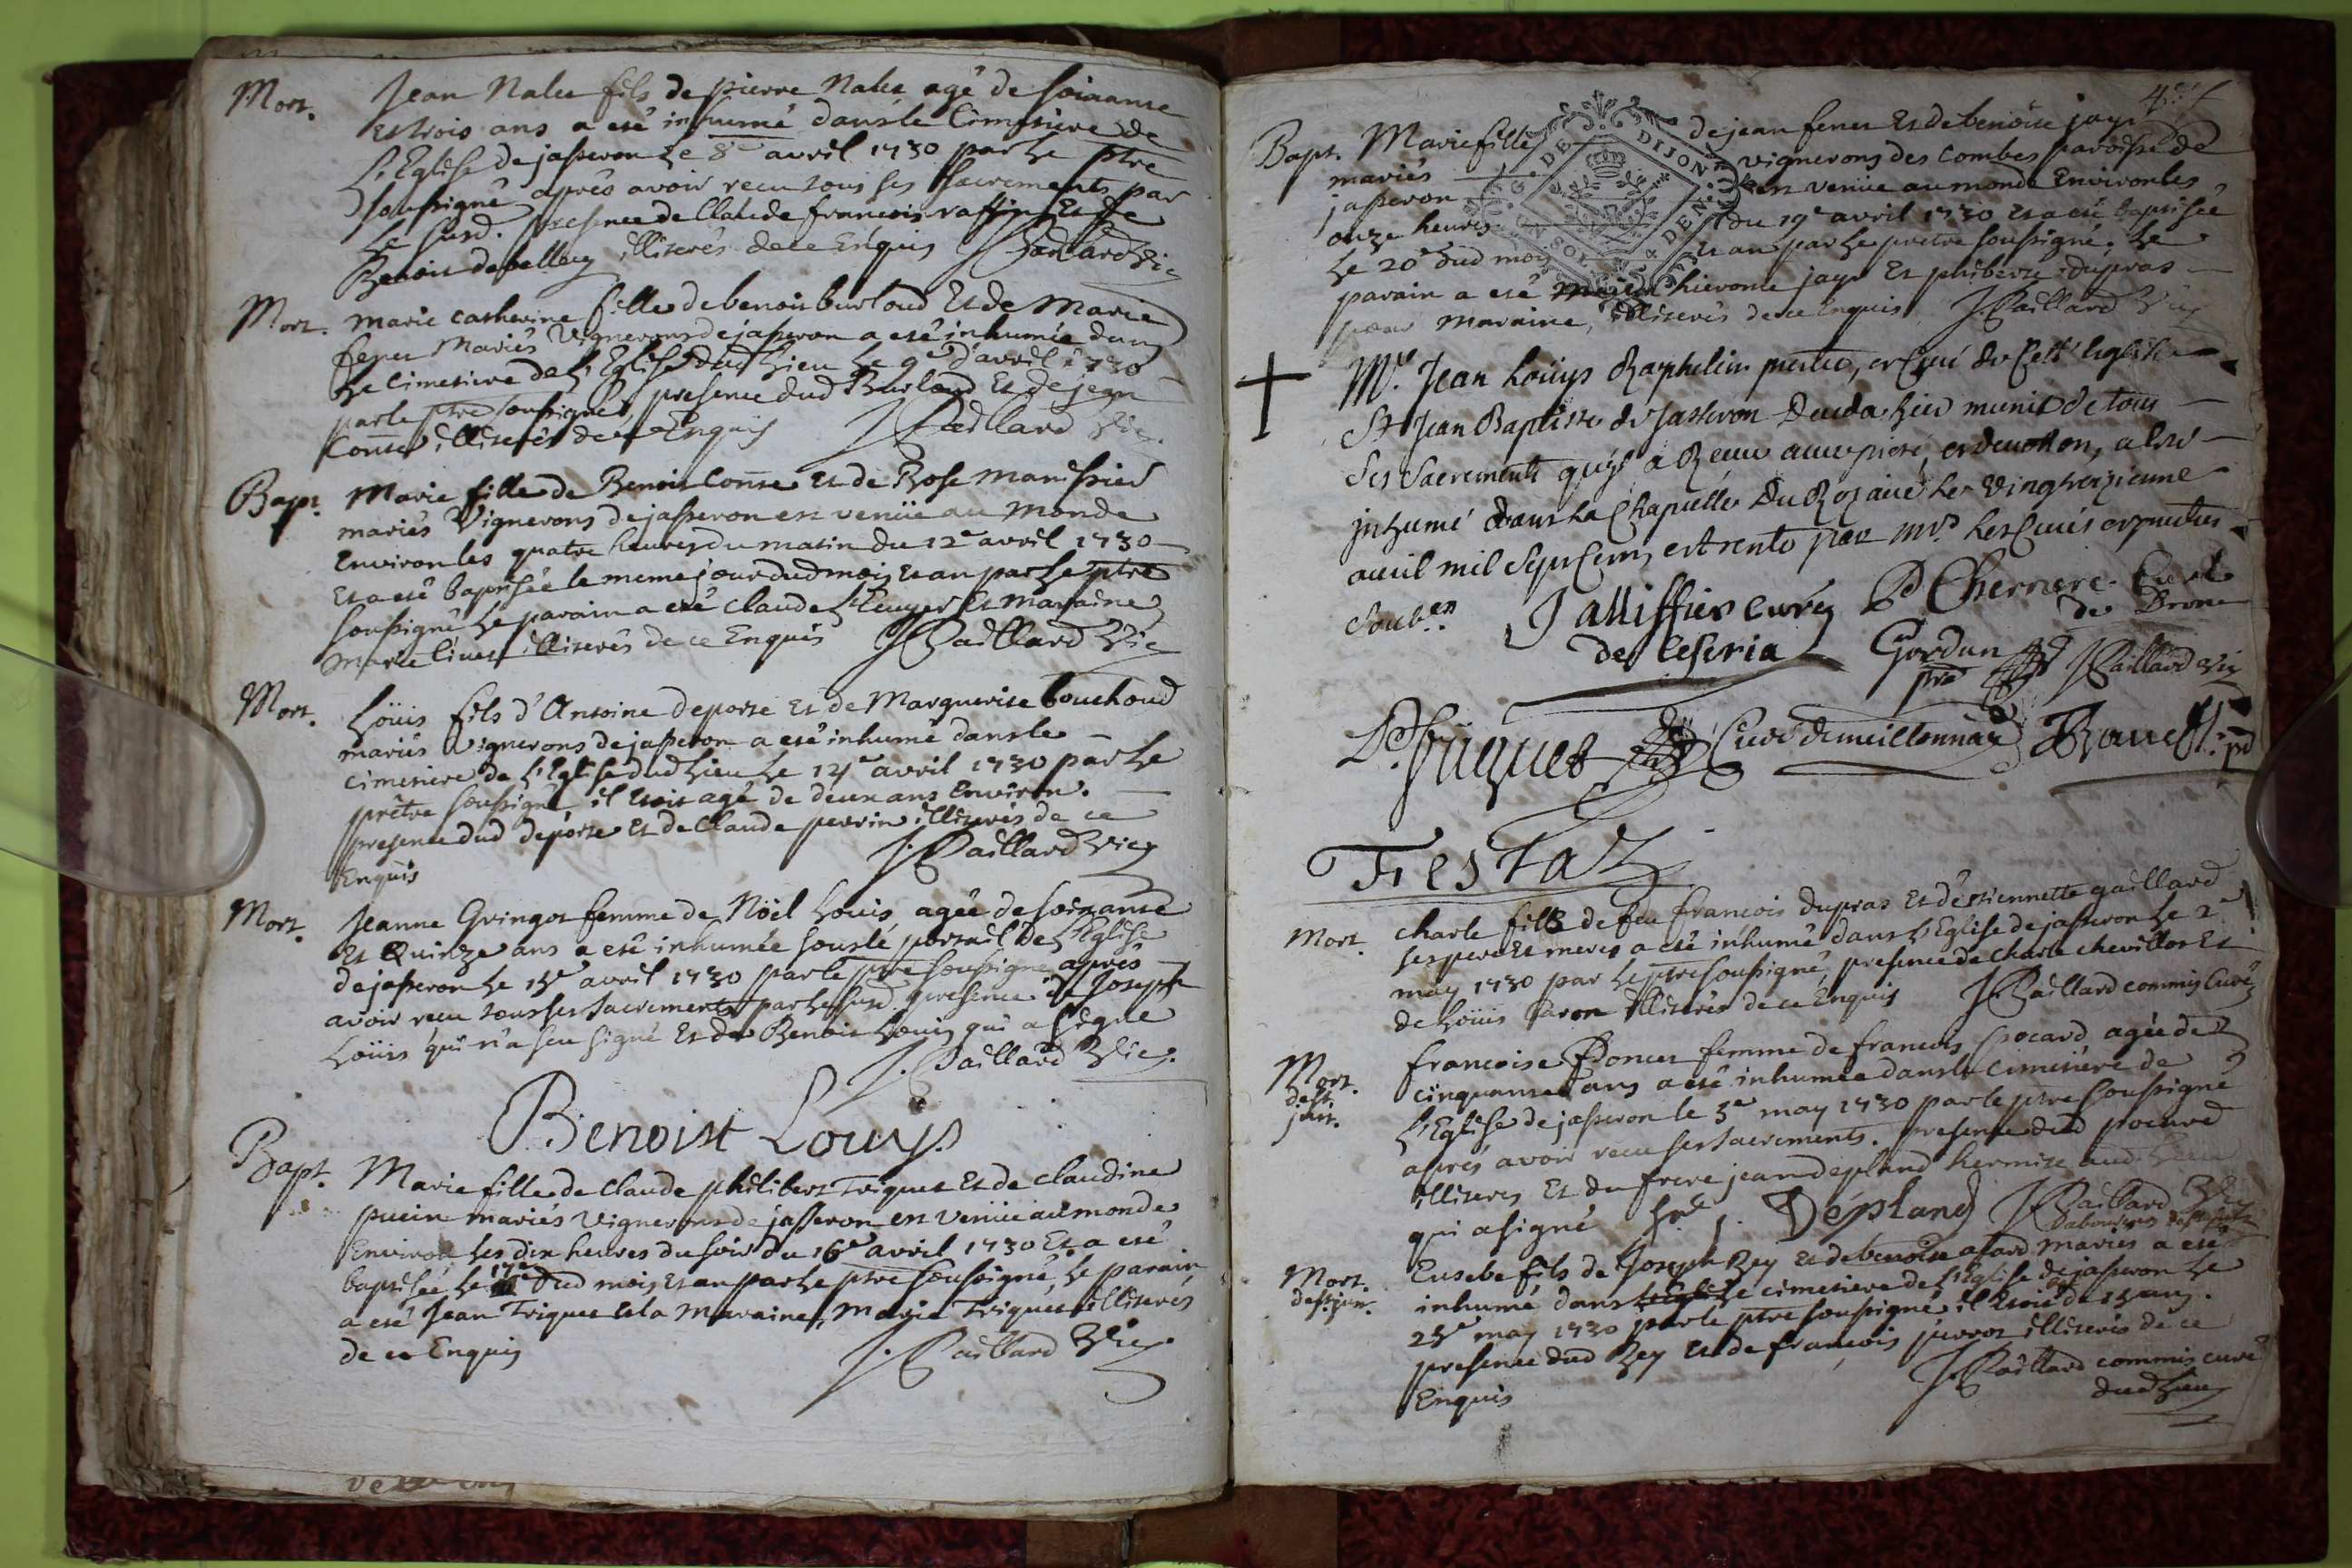 Mort. Jean Nalet fils de pierre Nalet agé de soixante
et trois ans a eté inhumé dans le Cimetiere de
L'Eglise de jasseron Le 8e avril 1730 par Le ptre
soussigné après avoir recu tous ses Sacrements par
Le susd. presence de Claude francois raffin Et de
Benoit debelley illiterés de ce Enquis J Paillard Vic
Mort. Marie catherine fille de benoit burloud Et de Marie
feney Mariés Vignerons de jasseron a eté inhumée dans
Le Cimetiere de L'Eglise dud Lieu Le 9e d'avril 1730
par le ptre soussigné, presence dud Burloud Et de jean
Conte illiterés de ce Enquis J Paillard Vic.
Bapt. Marie fille de Benoit Conte Et de Rose manissier
mariés Vignerons de jasseron est venüe au Monde
Environ les quatre heures du matin du 12e avril 1730
Et a eté baptisée le meme jour dud mois et an par Le ptre
soussigné Le parain a eté Claude L'Ecuyer Et Maraine
Marie livet illiterés de ce Enquis J Paillard Vic
Mort. Loüis fils d'Antoine deporte Et de Marguerite bouchoud
mariés Vignerons de jasseron a eté inhumé dans le
cimetiere de L'Eglise dud Lieu Le 14e avril 1730 par Le
prêtre soussigné il Etoit agé de deux ans Environ.
presence dud deporte Et de Claude perrin illiterés de ce
Enquis J. Paillard Vic
Mort. Jeanne Gringot femme de Nöel Louis agée de soixante
Et Quinze ans a eté inhumée sous le portail de L'Eglise
de jasseron Le 15e avril 1730 par le ptre soussigné après
avoir recu tous ses Sacrements par Le susd. presence de Joseph
Loüis qui n'a sceu signé Et de Benoit Louis qui a signé
J. Paillard Vic.
Benoist Louys
Bapt. Marie fille de Claude philibert Triquet Et de Claudine
pucin mariés Vignerons de jasseron est venüe au monde
Environ les dix heures du soir du 16e avril 1730 Et a eté
baptisée Le 17e dud mois et an par Le ptre soussigné, Le parain
a eté Jean Triquet et la Maraine, Marie Triquet illiterés
de ce Enquis J. Paillard Vic
G. DE DIJON
SOL
4 DEN.
Bapt. Marie fille de jean fenet Et de benoite jayr
mariés vignerons des Combes paroisse de
jasseron est venüe au monde Environ les
onze heures du 19e avril 1730 Et a eté baptisée
Le 20e dud mois et an par Le pretre soussigné. Le
parain a eté hierome jayr Et philiberte dupras
pour Maraine, illiterés de ce Enquis J. Paillard Vic
Mre. Jean Louÿs Raphelin prestre, et Curé de Cette Eglise
St Jean Baptiste de Jasseron Deceda hier munit de tous
Ses Sacrements qu'il a Receu avec pieté, et devotion, a eté
jnhumé dans La Chapelle Du Rozaire Le vingtreizieme
avril mil Sept Cent, et trente par Mrs. Les Curés et prestres
Soubsn Jalliffier curé P Cherriere. Curé
de Ceseria de Drom
Gordan ptre J Paillard Vic
Dd. Huguet Curé de meillonnaz
Frestaz
Mort. charle fils de feu francois dupras Et d'etiennette gaillard
ses pere et meres a eté inhumé dans L'Eglise de jasseron Le 2e
may 1730 par Le ptre soussigné, presence de Charle chevillot Et
de Loüis illiterés de ce Enquis J. Paillard commis Curé
Mort. francoise Poncet femme de francois pocard agée de
cinquante ans a eté inhumée dans le cimetiere de
L'Eglise de jasseron le 3e may 1730 par le ptre soussigné
après avoir receu ses Sacrements. presence dud pocard
illiteres Et du frere jean depland hermite aud Lieu
qui a signé fre j. Depland J Paillard Vic
Mort. Eusebe fils de Joseph Rey Et de benoite mariés a eté
inhumé dans Le cimetiere de L'Eglise de jasseron Le
25e may 1730 par le ptre soussigné il Etoit de 15 ans.
presence dud Rey Et de francois juvrot illiterés de ce
Enquis J. Paillard commis curé
dud Lieu